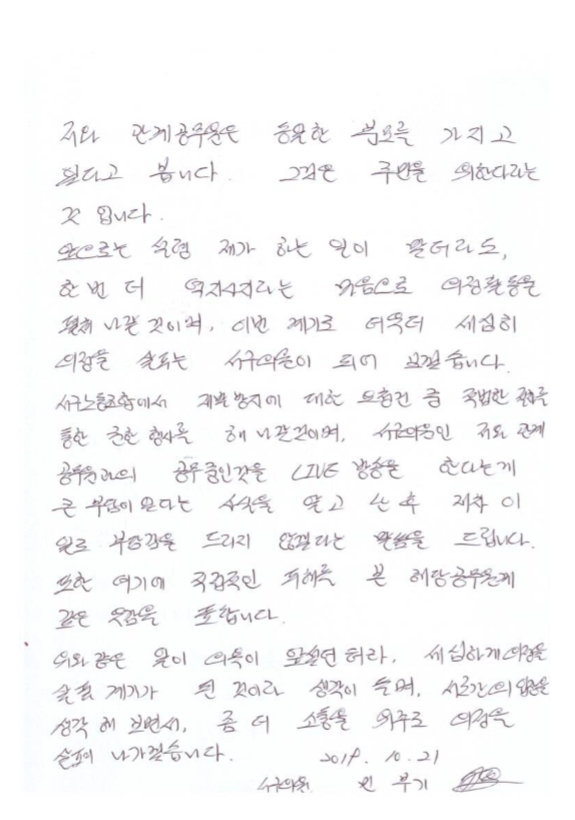 저와 관계공무원은 동일한 목표를 가지고
뛴다고 봅니다. 그것은 주민을 위한다라는
것 입니다.
앞으로는 설령 제가 하는 일이 맞더라도,
한번 더 역지사지라는 마음으로 의정활동을
펼쳐 나갈 것이며, 이번 계기로 더욱더 세심히
의정을 살피는 서구의원이 되어 보겠습니다.
서구노동조합에서 재발방지에 대한 요청건 중 적법한 절차를
통한 권한 행사를 해 나갈것이며, 서구의원인 저와 관계
공무원과의 공무중인것을 LIVE 방송을 한다는게
큰 부담이 된다는 사실을 알고 난 후 재차 이
일로 부담감을 드리지 않겠다는 말씀을 드립니다.
또한 여기에 직접적인 피해를 본 해당공무원께
깊은 유감을 표합니다.
위와 같은 일이 의욕이 앞섰던 터라, 세심하게 의정을
살필 계기가 된 것이라 생각이 들며, 서로간의 입장을
생각 해 보면서, 좀 더 소통을 위주로 의정을
살피어 나가겠습니다. 2019. 10. 21
서구의원 민 부기